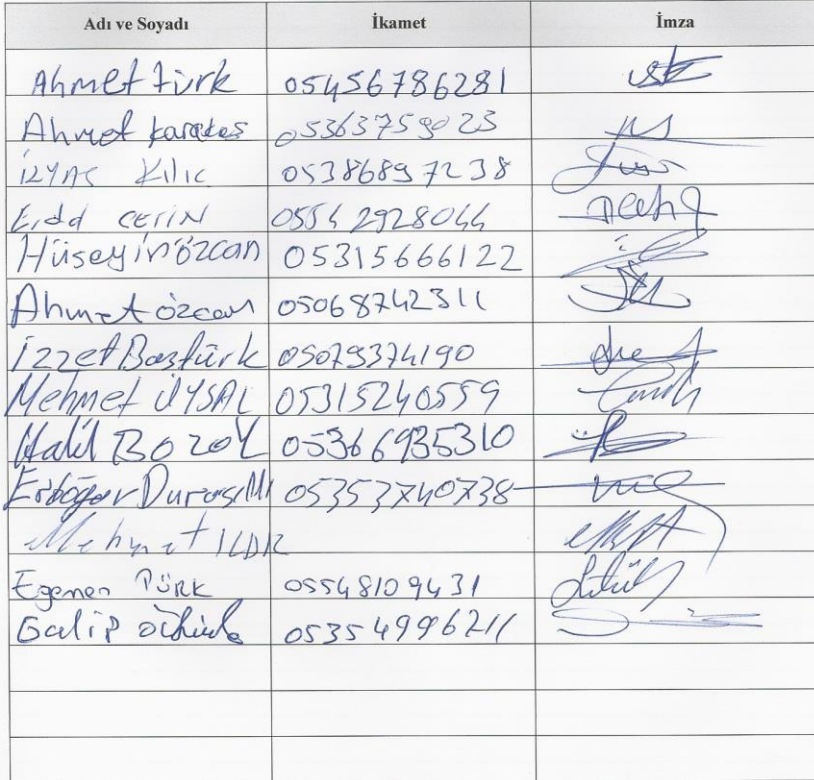 Adı ve Soyadı İkamet İmza
Ahmet türk 05456786281
Ahmet karataş 05363759023
İLYAS Kılıc 05386897238
CETİN 05542928044
Hüseyin özcan 05315666122
Ahmet özcan 05068742311
İzzet Baştürk 05079374190
Mehmet UYSAL 05315240559
Halil BOZOK 05366935310
05353740738
Mehmet
Egemen TÜRK 05548109431
Galip 05354996211